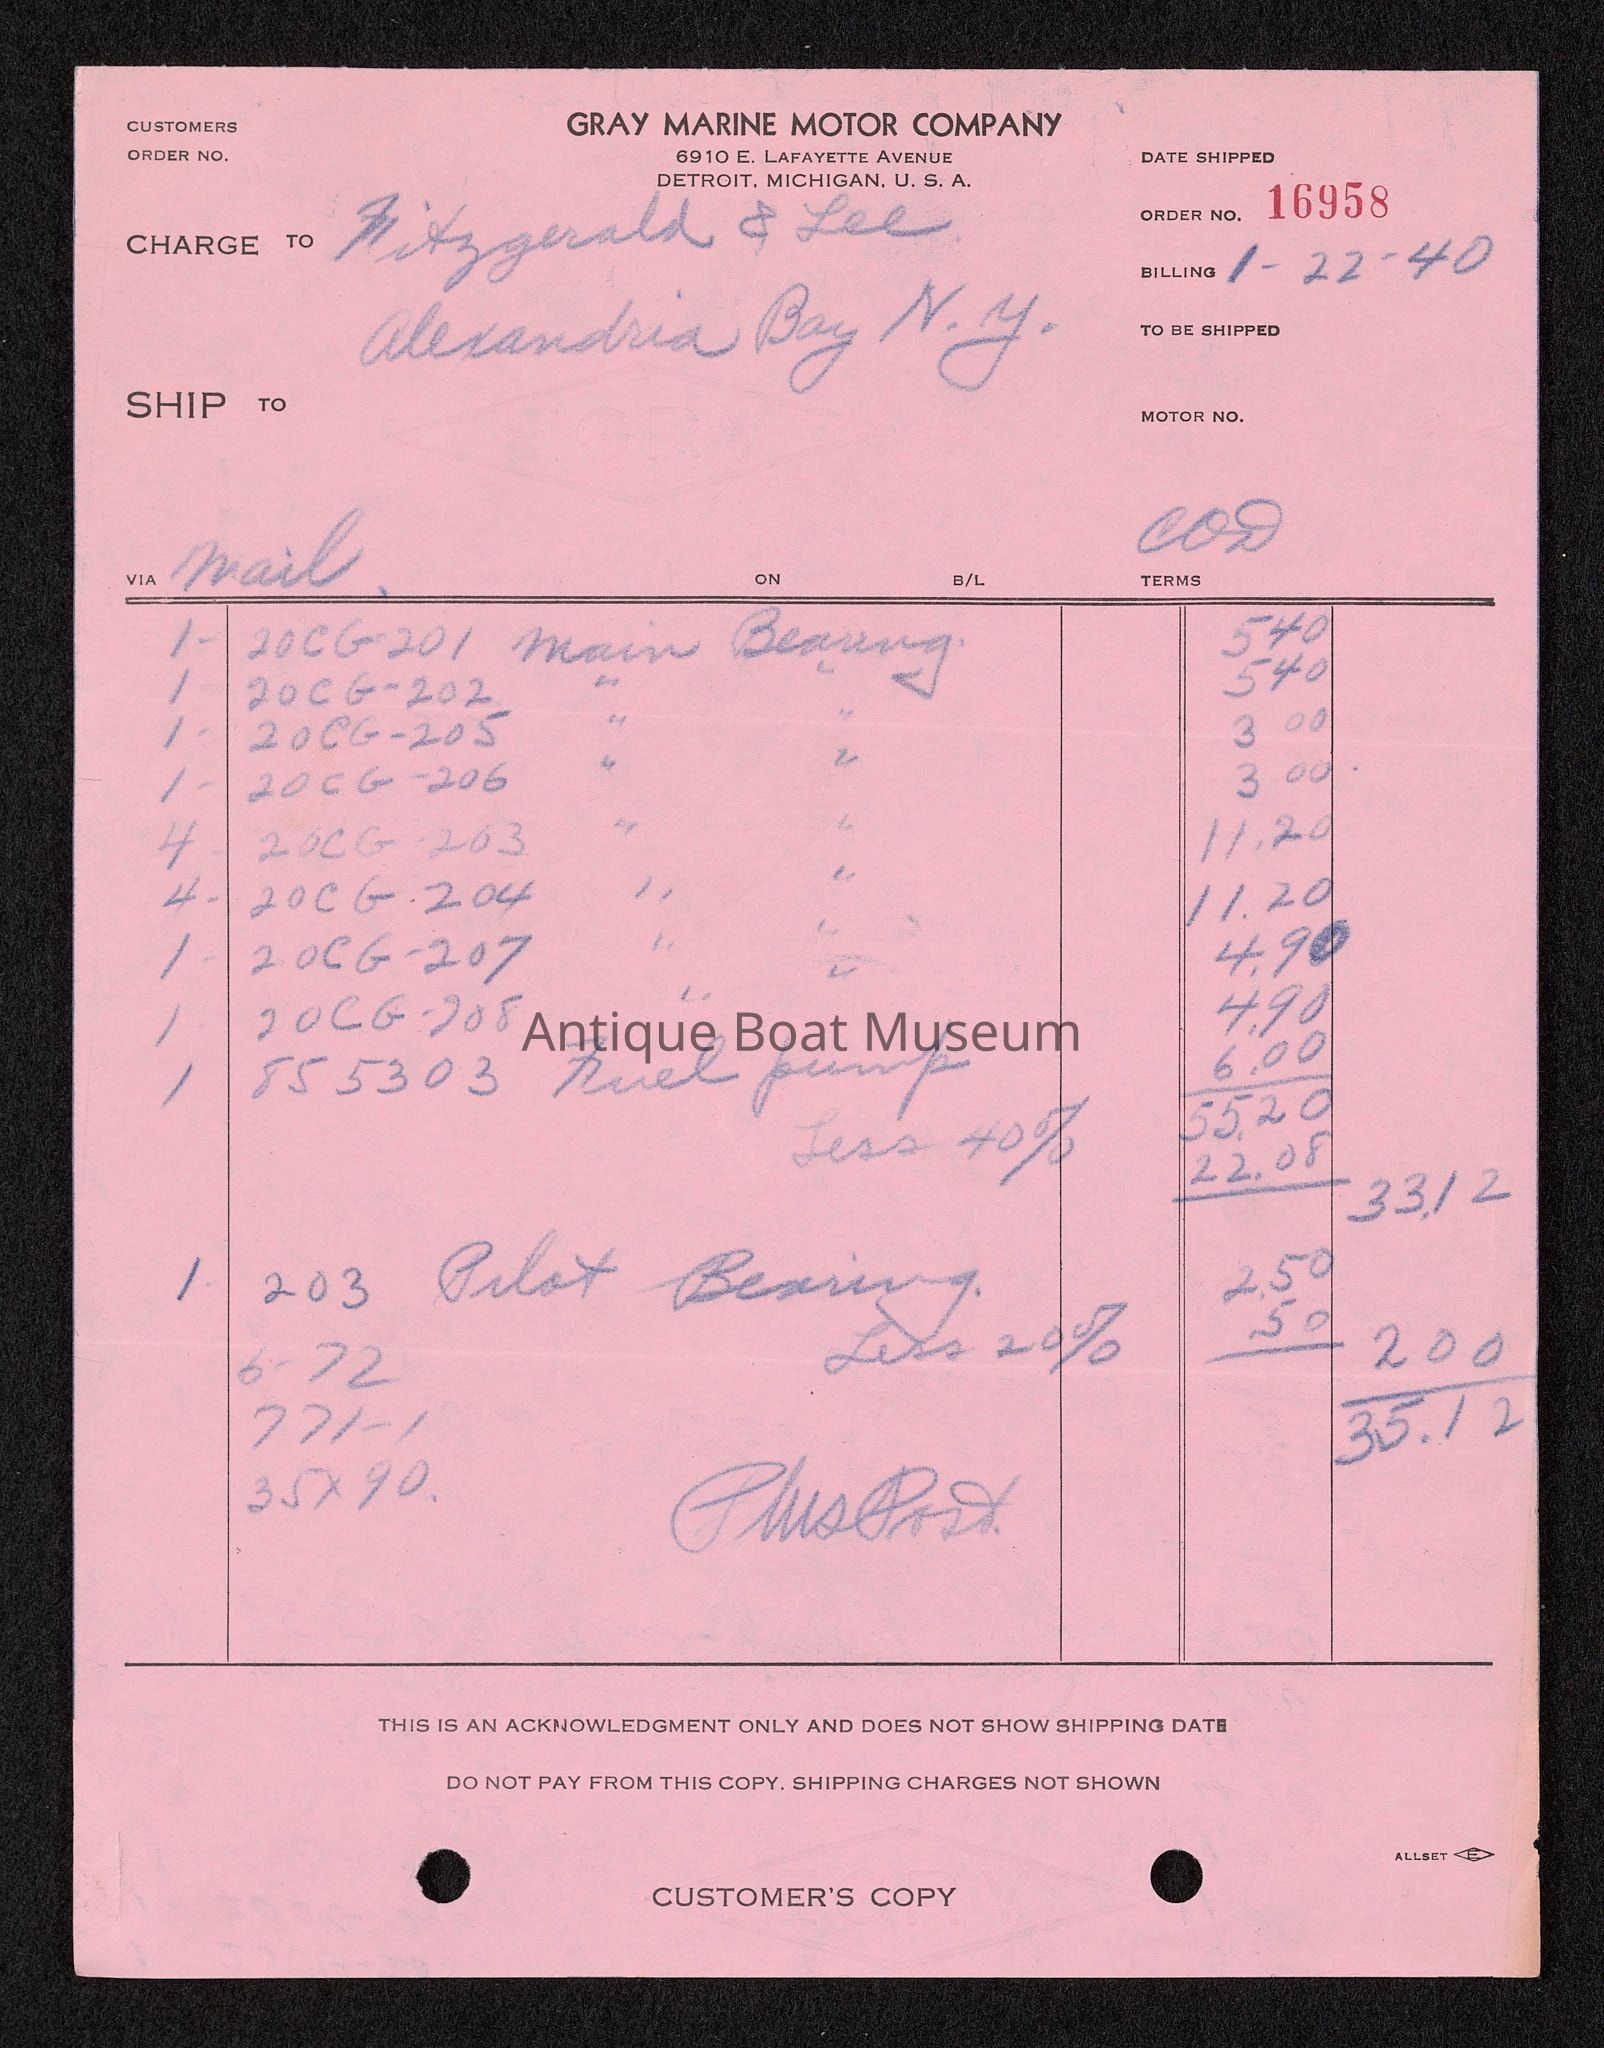 CUSTOMERS
ORDER NO.
GRAY MARINE MOTOR COMPANY
6910 E. LAFAYETTE AVENUE
DETROIT, MICHIGAN, U. S. A.
DATE SHIPPED
ORDER NO. 16958
CHARGE TO Fitzgerald & Lee
BILLING 1-22-40
Alexandria Bay N. Y.
TO BE SHIPPED
SHIP TO
MOTOR NO.
VIA Mail. ON B/L TERMS COD
1- 20CG-201 Main Bearing. 540
1- 20CG-202 " " 540
1- 20CG-205 " " 3 00
1- 20CG-206 " " 3 00
4 20CG 203 " " 11.20
4- 20CG-204 " " 11.20
1- 20CG-207 " " 4.90
1 20CG-208 " " 4.90
Antique Boat Museum
1 855303 Fuel pump 6.00
55.20
Less 40% 22.08 33.12
1- 203 Pilot Bearing. 2.50
Less 20% .50 2 00
6-72
35.12
771-1
35X90.
Plus Post.
THIS IS AN ACKNOWLEDGMENT ONLY AND DOES NOT SHOW SHIPPING DATE
DO NOT PAY FROM THIS COPY. SHIPPING CHARGES NOT SHOWN
ALLSET E
CUSTOMER'S COPY